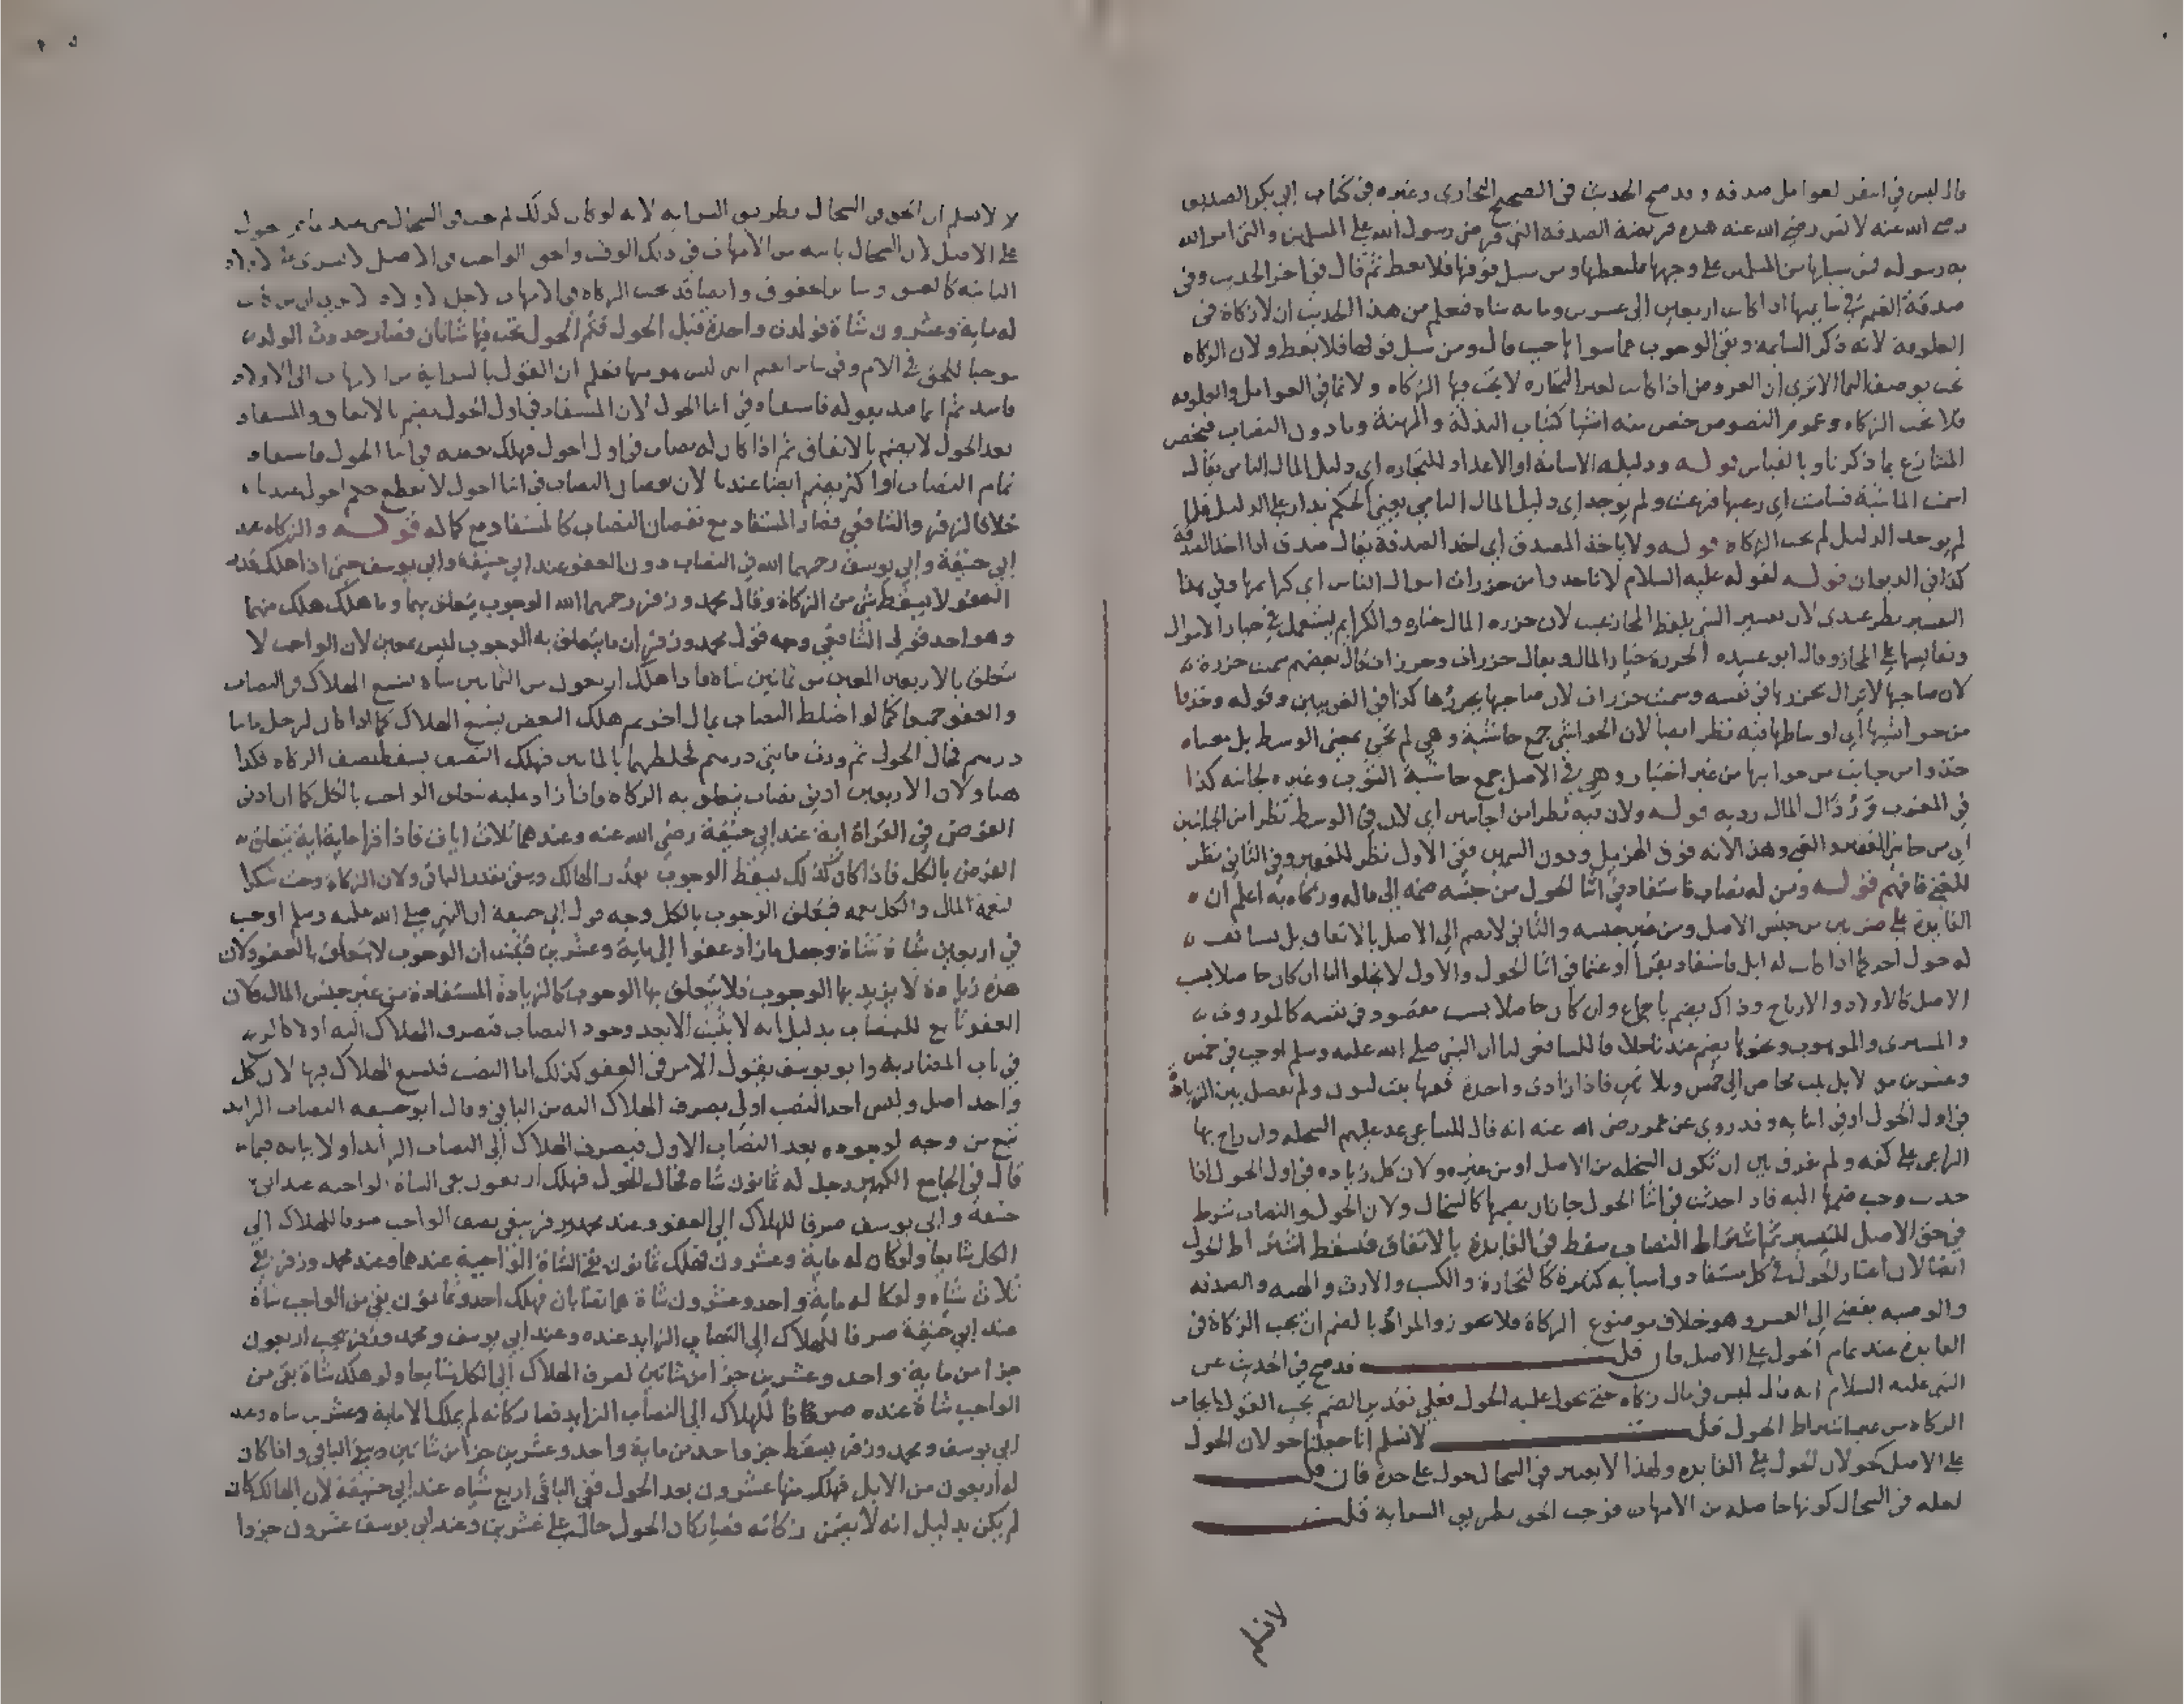 قال ليس في البقر العوامل صدقة وقد صح الحديث في الصحيح البخاري وغيره في كتاب ابي بكر الصديق
رضي الله عنه لانس رضي الله عنه هذه فريضة الصدقة التي فرض رسول الله على المسلمين والتي امر الله
به رسوله فمن سيلها من المسلمين على وجهها فليعطها ومن سيل فوقها فلا يعط ثم قال في اخر الحديث وفي
صدقة الغنم في سايمتها اذا كانت اربعين الى عشرين وماية شاة فعلم من هذا الحديث ان لا زكاة في
العلوفة لانه ذكر السايمة ونفى الوجوب عما سواها حيث قال ومن سيل فوقها فلا يعط ولان الزكاة
تجب بوصف النما الا ترى ان العروض اذا كانت لغير التجارة لا تجب فيها الزكاة ولا نما في العوامل والعلوفة
فلا تجب الزكاة وعموم النصوص خص منه اشيا كثياب البذلة والمهنة وما دون النصاب فيخص
المتنازع بما ذكرنا وبالقياس قوله ودليله الاسامة او الاعداد للتجارة اي دليل المال النامي يقال
اسمت الماشية فسامت اي رعيتها فرعت ولم يوجد اي دليل المال النامي يعني الحكم يدار على الدليل فلما
لم يوجد الدليل لم تجب الزكاة قوله ولا ياخذ المصدق اي اخذ الصدقة يقال صدق اذا اخذ الصدقة
كذا في الديوان قوله لقوله عليه السلام لا تاخذوا من حزرات اموال الناس اي كرايمها وفي هذا
التفسير نظر عندي لان تفسير الشي بلفظ المجاز عيب لان حزرة المال خياره والكرايم يستعمل في خيار الاموال
ونفايسها على المجاز وقال ابو عبيده الحزرة خيار المال ويقال حزرات وحرزات قال بعضهم سميت حزرة
لان صاحبها لا يزال يحزرها في نفسه وسميت حرزات لان صاحبها يحرزها كذا في الغريبين وقوله وخذوا
من حواشيها اي اوساطها فيه نظر ايضا لان الحواشي جمع حاشية وهي لم تجي بمعنى الوسط بل معناه
خذوا من جانب من جوانبها من غير اختيار وهي في الاصل جمع حاشية الثوب وغيره لجانبه كذا
في المغرب ورذال المال رديه قوله ولان فيه نظرا من الجانبين اي لان في الوسط نظرا من الجانبين
اي من جانب الفقير والغني وهذا لانه فوق الهزيل ودون السمين ففي الاول نظر للفقير وفي الثاني نظر
للغني فافهم قوله ومن له نصاب فاستفاد في اثنا الحول من جنسه ضمه الى ماله وزكاه به اعلم ان
الفايدة على ضربين من جنس الاصل ومن غير جنسه والثاني لا يضم الى الاصل بالاتفاق بل يستانف
له حول اخر كما اذا كانت له ابل فاستفاد بقرا او غنما في اثنا الحول والاول لا يخلو اما ان كان حاصلا بسبب
الاصل كالاولاد والارباح وذاك يضم باجماع وان كان حاصلا بسبب مقصود في نفسه كالموروث
والمشترى والموهوب ونحوها يضم عندنا خلافا للشافعي لنا ان النبي صلى الله عليه وسلم اوجب في خمس
وعشرين من الابل بنت مخاض الى خمس وثلاثين فاذا زادت واحدة ففيها بنت لبون ولم يفصل بين الزيادة
في اول الحول او في اثنايه وقد روي عن عمر رضي الله عنه انه قال للساعي عد عليهم السخلة وان راح بها
الراعي على كفه ولم يفرق بين ان تكون السخلة من الاصل او من غيره ولان كل زيادة في اول الحول اذا
حدثت وجب ضمها اليه فاذا حدثت في اثنا الحول جاز ان يضمها كالسخال ولان الحول والنصاب شرط
في حق الاصل للتيسير ثم اشتراط النصاب سقط في الفايدة بالاتفاق فسقط اشتراط الحول
ايضا لان اعتبار الحول في كل مستفاد واسبابه كثيرة كالتجارة والكسب والارث والهبه والصدقه
والوصية يفضي الى العسر وهو خلاف موضوع الزكاة فلا يجوز والمراد بالضم ان تجب الزكاة في
الفايدة عند تمام الحول على الاصل فان قلت قد صح في الحديث عن
النبي عليه السلام انه قال ليس في مال زكاة حتى يحول عليه الحول فعلى تقدير الضم يجب القول بايجاب
الزكاة من غير اشتراط الحول قلت لا نسلم انا جعلنا حولان الحول
على الاصل كحولان الحول على الفايدة ولهذا لا يعتبر في السخال حول على حدة فان قلت
لعله في السخال كونها حاصلة من الامهات فوجب الحق بطريق السراية قلت
لانسلم
لا نسلم ان الحق في السخال بطريق السراية لانه لو كان كذلك لم تجب في السخال حين عند تمام حول
على الاصل لان السخال باينة من الامهات في ذلك الوقت والحق الواجب في الاصل لا يسري
له ماية وعشرون شاة فولدت واحدة قبل الحول فتم الحول تجب فيها شاتان فصار حدوث الولد
موجبا للحق في الام فعلم ان القول بالسراية من الامهات الى الاولاد
فاسد ثم انما قيد بقوله فاستفاد في اثنا الحول لان المستفاد في اول الحول يضم بالاتفاق والمستفاد
بعد الحول لا يضم بالاتفاق ثم اذا كان له نصاب في اول الحول فهلك بعضه في اثنا الحول فاستفاد
تمام النصاب او اكثر يضم ايضا عندنا لان نقصان النصاب في اثنا الحول لا يقطع حكم الحول عندنا
خلافا لزفر والشافعي فصار المستفاد مع نقصان النصاب كالمستفاد مع كماله قوله والزكاة عند
ابي حنيفة وابي يوسف رحمهما الله في النصاب دون العفو عند ابي حنيفة وابي يوسف حتى اذا هلك قدر
العفو لا يسقط شي من الزكاة وقال محمد وزفر رحمهما الله الوجوب يتعلق بهما وما هلك هلك منهما
وهو احد قولي الشافعي وجه قول محمد وزفر ان ما يتعلق به الوجوب ليس بمعين لان الواجب لا
يتعلق بالاربعين المعين من ثمانين شاة فاذا هلك اربعون من الثمانين شاة يشيع الهلاك في النصاب
والعفو جميعا كما لو اختلط النصاب بمال اخر ثم هلك البعض يشيع الهلاك كما اذا كان لرجل مايتا
درهم فحال الحول ثم ورث مايتي درهم فخلطهما بالمايتين فهلك النصف يسقط نصف الزكاة فكذا
هنا ولان الاربعين ادنى نصاب يتعلق به الزكاة واذا زاد عليه يتعلق الواجب بالكل كما ان ادنى
الفرض في القراة اية عند ابي حنيفة رضي الله عنه وعندهما ثلاث ايات فاذا قرا ماية اية يتعلق
الفرض بالكل فاذا كان كذلك يسقط الوجوب بقدر الهالك ويبقى بقدر الباقي ولان الزكاة وجبت شكرا
لنعمة المال والكل نعمه فيتعلق الوجوب بالكل وجه قول ابي حنيفة ان النبي صلى الله عليه وسلم اوجب
في اربعين شاة شاة وجعل ما زاد عفوا الى ماية وعشرين فثبت ان الوجوب لا يتعلق بالعفو ولان
هذه زيادة لا يزيد بها الوجوب فلا يتعلق بها الوجوب كالزيادة المستفادة من غير جنس المال ولان
العفو تابع للنصاب بدليل انه لا يثبت الا بعد وجود النصاب فيصرف الهلاك اليه اولا كالربح
في باب المضاربة وابو يوسف يقول الامر في العفو كذلك اما النصب فيشيع الهلاك فيها لان كل
واحد اصل وليس احد النصب اولى بصرف الهلاك اليه من الباقي وقال ابو حنيفة النصاب الزايد
تبع من وجه لوجوده بعد النصاب الاول فيصرف الهلاك الى النصاب الزايد اولا بيانه فيما
قال في الجامع الكبير رجل له ثمانون شاة فحال الحول فهلك اربعون بقي الشاة الواجبه عند ابي
حنيفة وابي يوسف صرفا للهلاك الى العفو وعند محمد وزفر يبقى نصف الواجب صرفا للهلاك الى
الكل شايعا ولو كان له ماية وعشرون فهلك ثمانون بقي الشاة الواجبة عندهما وعند محمد وزفر بقي
ثلاث شاه ولو كا له ماية واحد وعشرون شاة هما نصابان فهلك احد وثمانون بقي من الواجب شاة
عند ابي حنيفة صرفا للهلاك الى النصاب الزايد عنده وعند ابي يوسف ومحمد وزفر يجب اربعون
جزا من ماية واحد وعشرين جزا من شاتين لصرف الهلاك الى الكل شايعا ولو هلك شاة بقي من
الواجب شاة عنده صرفا للهلاك الى النصاب الزايد فصار كانه لم يملك الا ماية وعشرين شاة وعند
ابي يوسف ومحمد وزفر يسقط جزو احد من ماية واحد وعشرين جزا من شاتين ويبقى الباقي واذا كان
له اربعون من الابل فهلك منها عشرون بعد الحول ففي الباقي اربع شياه عند ابي حنيفة لان الهالك كان
لم يكن بدليل انه لا يضمن زكاته فصار كان الحول حال على عشرين وعند ابي يوسف عشرون جزوا